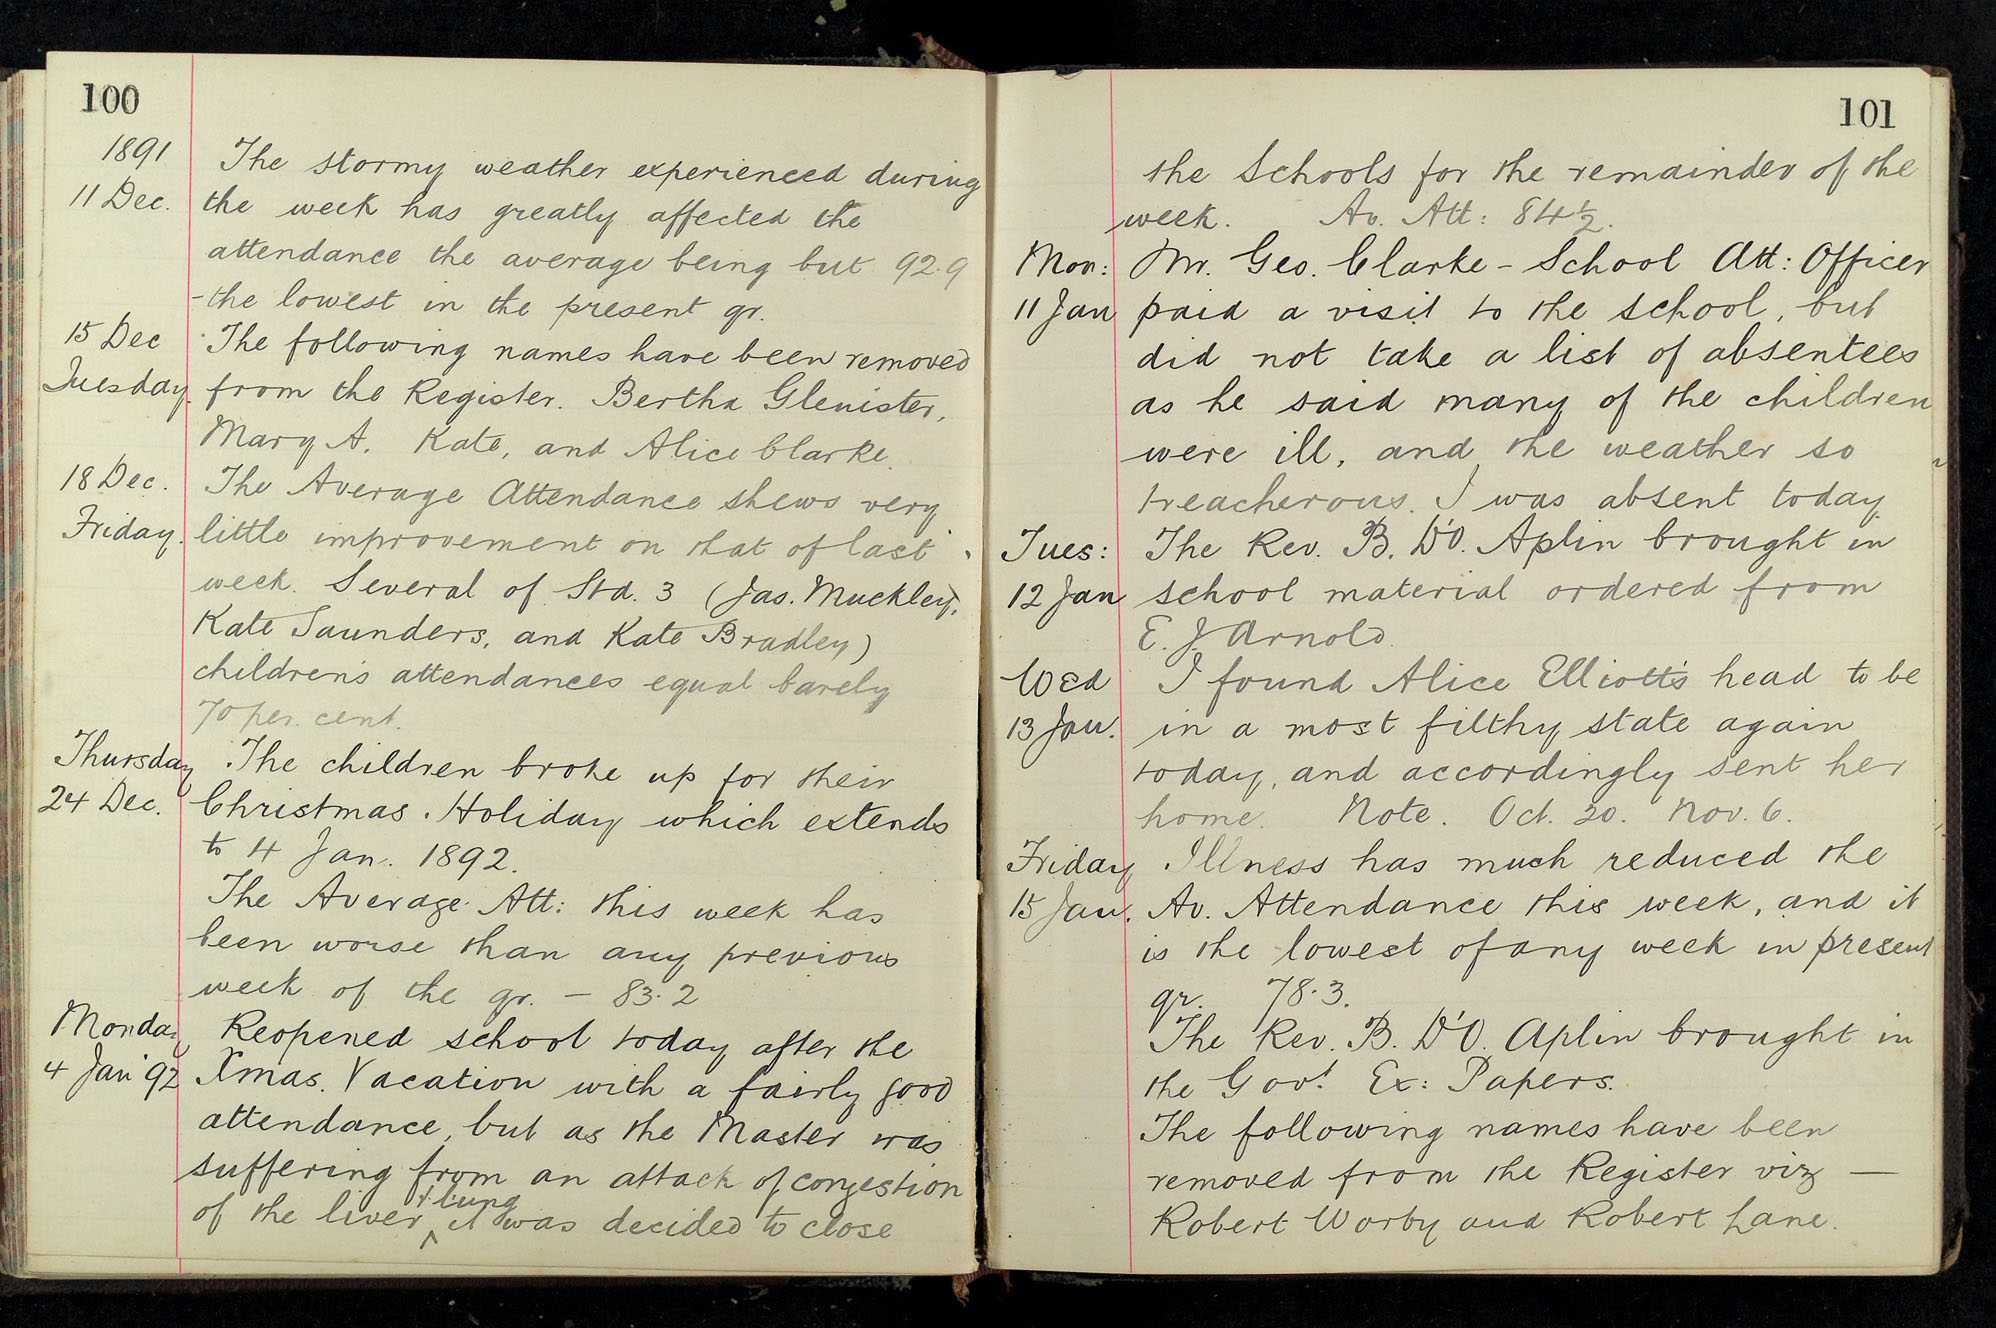 100
1891 The stormy weather experienced during
11 Dec. the week has greatly affected the
attendance the average being but 92.9
- the lowest in the present qr.
15 Dec The following names have been removed
Tuesday. from the Register. Bertha Glenister,
Mary A. Kate, and Alice Clarke.
18 Dec. The Average Attendance shews very
Friday. little improvement on that of last
week. Several of Std. 3 (Jas. Muckley,
Kate Saunders, and Kate Bradley)
children's attendances equal barely
70 per. cent.
Thursday The children broke up for their
24 Dec. Christmas Holiday which extends
to 4 Jan. 1892.
The Average Att: this week has
been worse than any previous
week of the qr. - 83.2
Monday Reopened school today after the
4 Jan '92 Xmas. Vacation with a fairly good
attendance, but as the Master was
suffering from an attack of congestion
of the liver + lung it was decided to close
101
the Schools for the remainder of the
week. Av. Att: 84 1/2.
Mon: Mr. Geo. Clarke - School Att: Officer
11 Jan paid a visit to the school, but
did not take a list of absentees
as he said many of the children
were ill, and the weather so
treacherous. I was absent today.
Tues: The Rev. B. D'O. Aplin brought in
12 Jan school material ordered from
E. J. Arnold.
Wed I found Alice Elliott's head to be
13 Jan. in a most filthy state again
today, and accordingly sent her
home. Note. Oct. 20. Nov. 6.
Friday Illness has much reduced the
15 Jan. Av. Attendance this week, and it
is the lowest of any week in present
qr. 78.3.
The Rev. B. D'O. Aplin brought in
the Govt. Ex: Papers.
The following names have been
removed from the Register viz —
Robert Worby and Robert Lane.